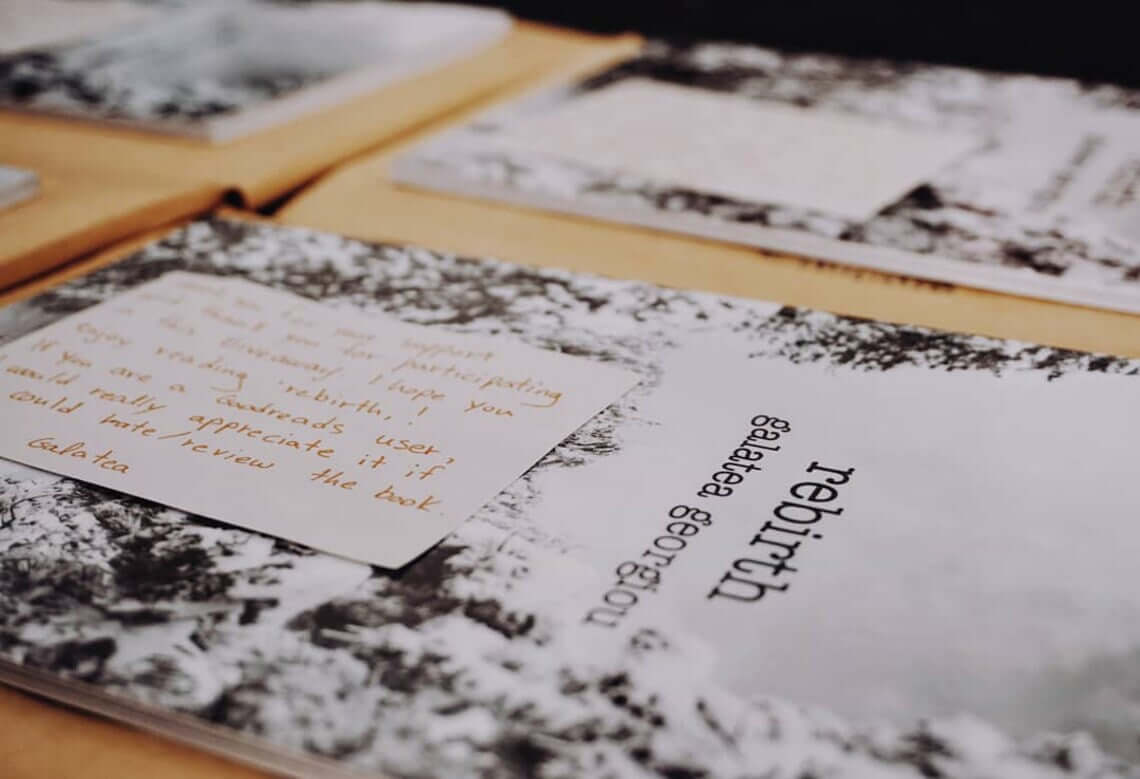 you for your support
thank you for participating
this Giveaway, I hope you
enjoy reading 'rebirth,' i
If you are a Goodreads user,
would really appreciate it if
could rate/review the book.
Galatea
rebirth
galatea georgiou